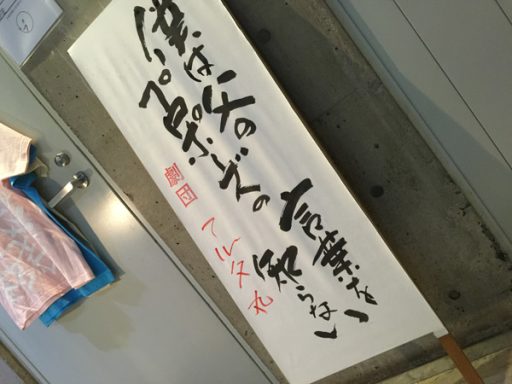 僕は父の
プロポーズの
言葉を
知らない
劇団 アルタ丸